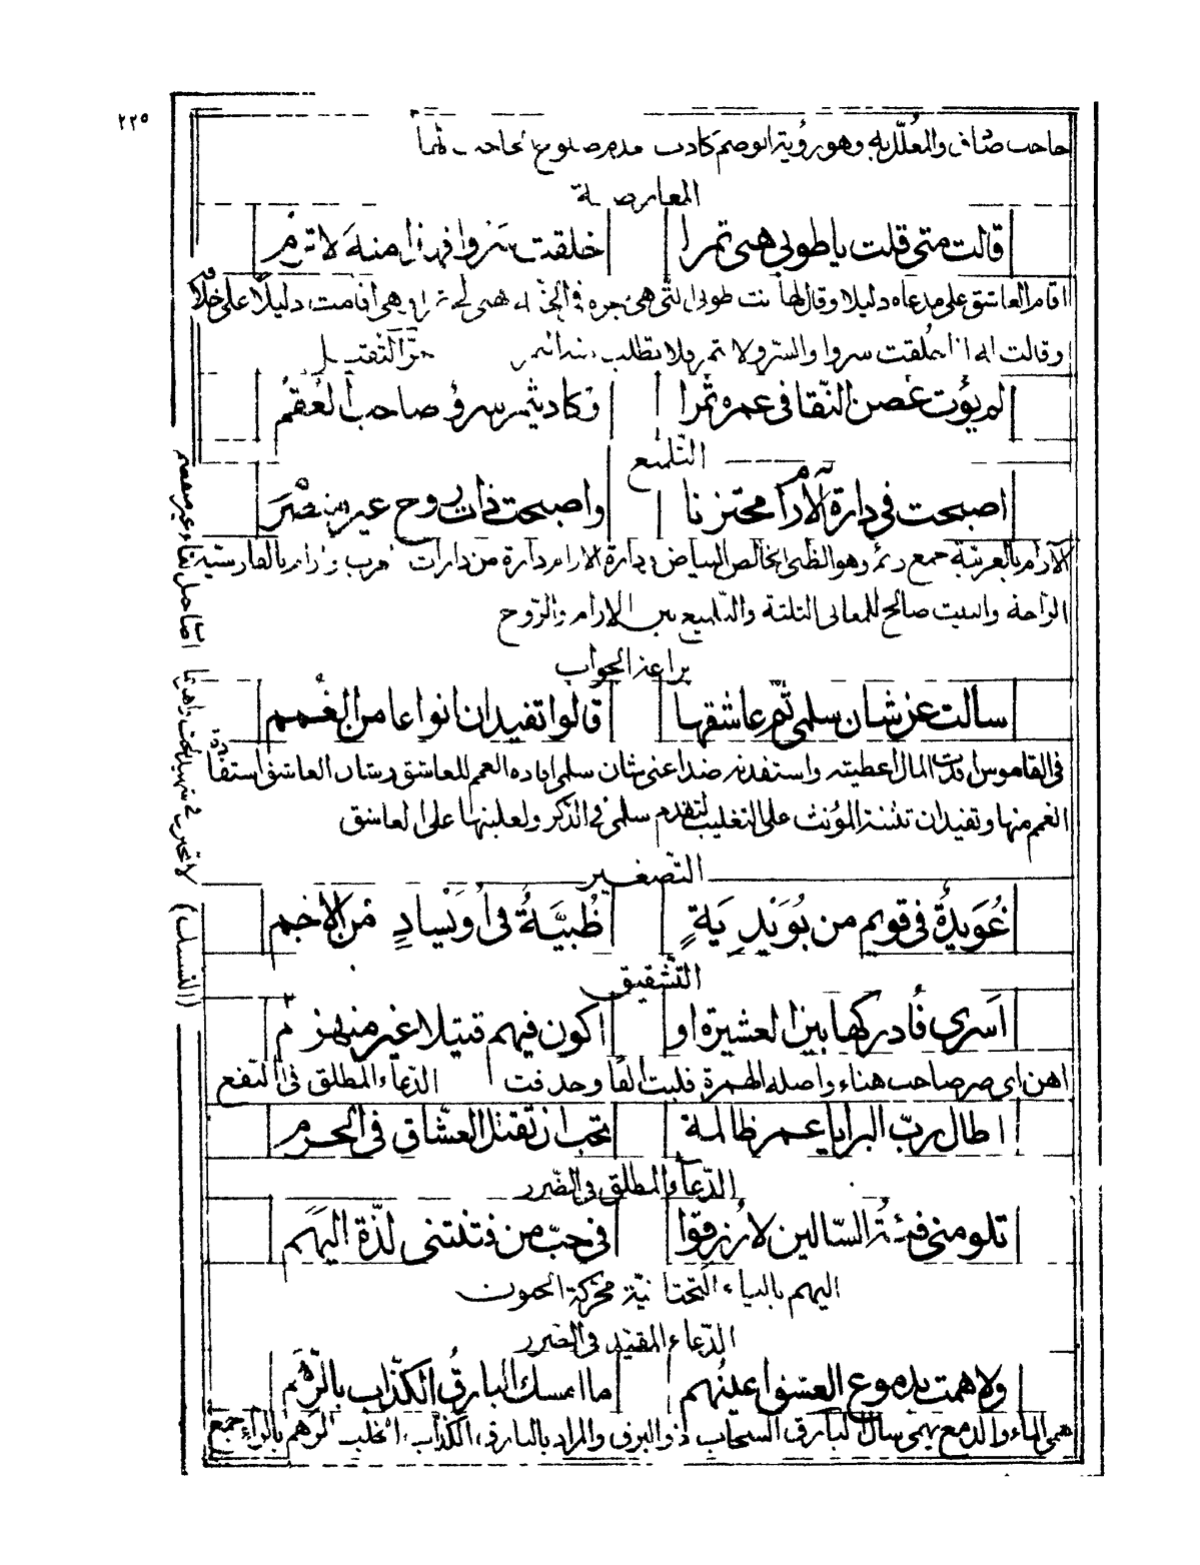 ٢٢٥
المعارضة
قالت متى قلت يا طوبى هبى ثمرا
خلقت سروا فهذا منه لا ترم
اقام العاشق على مدعاه دليلا وقال لها انت طوبى التى هى شجرة فى الجنة هبى لى ثمرا وهى اقامت دليلا على خلافه
وقالت له اذا خلقت سروا والسرو لا ثمر فلا تطلب
لم يؤت غصن النقا فى عمره ثمرا
وكاد يثمر سرو صاحب العقم
التلميع
اصبحت فى دارة الآرام محتزنا
واصبحت ذات روح غير منصرم
الآرام بالعربية جمع رئم وهو الظبى الخالص البياض ودارة الارام دارة من دارات العرب وارام بالفارسية
الراحة والبيت صالح للمعانى الثلثة والتلميع بين الارام والروح
براعة الجواب
سالت عن شان سلمى ثم عاشقها
قالوا تفيدان انواعا من الغمم
فى القاموس افدت المال اعطيته واستفدته ضد اعنى شان سلمى افادة الغمم للعاشق وشان العاشق استفادة
الغمم منها وتفيدان تثنية المؤنث على التغليب لتقدم سلمى فى الذكر ولغلبتها على العاشق
التصغير
غويدة فى قويم من بويدية
ظبية فى اويساد من الاجم
التشقيق
اسرى فادركها بين العشيرة او
اكون فيهم قتيلا غير منهزم
الدعاء المطلق فى النفع
اطال رب البرايا عمر ظالمة
تحب ان تقتل العشاق فى الحرم
الدعاء المطلق فى الضرر
تلومنى فئة السالين لا رزقوا
فى حب من فتنتنى لذة اليهم
اليهم بالياء التحتانية محركة الجنون
الدعاء المقيد فى الضرر
ولا همت بدموع العشق اعينهم
ما امسك البارق الكذاب بالرهم
همى الماء والدمع يهمى سال البارق السحاب ذو البرق والمراد بالبارق الكذاب الخلب الرهم بالراء جمع